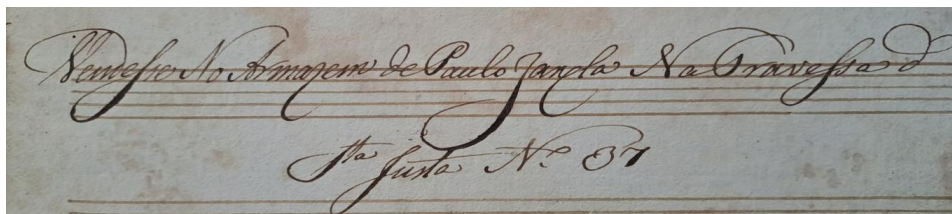 Vendesse No Armazem de Paulo Zancla Na Travessa d
Sta Justa No. 37